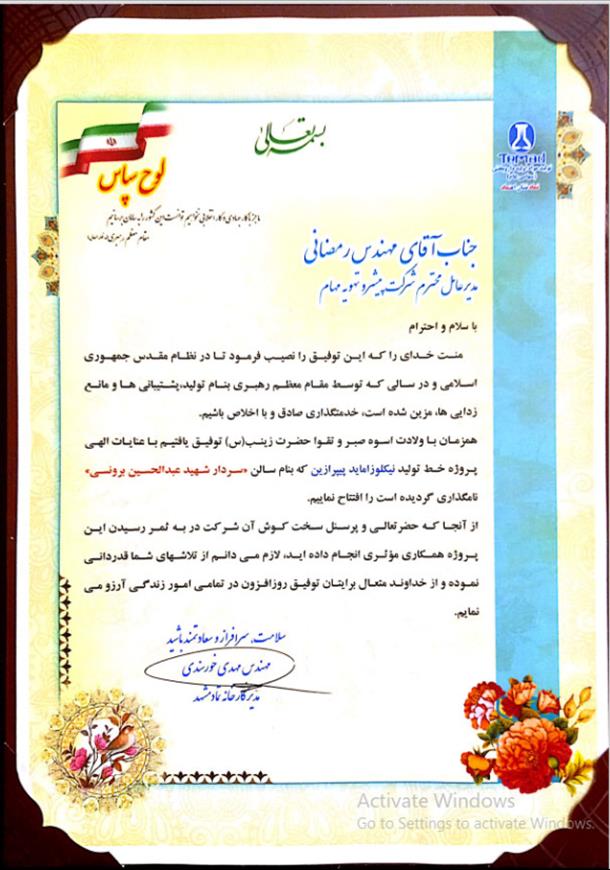 بسمه تعالی
Temad
لوح سپاس
ما جز با کار جهادی و کار انقلابی نخواهیم توانست این کشور را به سامان برسانیم
مقام معظم رهبری
جناب آقای مهندس رمضانی
مدیر عامل محترم شرکت پیشرو تهویه مهام
با سلام و احترام
منت خدای را که این توفیق را نصیب فرمود تا در نظام مقدس جمهوری
اسلامی و در سالی که توسط مقام معظم رهبری بنام تولید،پشتیبانی ها و مانع
زدایی ها، مزین شده است، خدمتگذاری صادق و با اخلاص باشیم.
همزمان با ولادت اسوه صبر و تقوا حضرت زینب(س) توفیق یافتیم با عنایات الهی
پروژه خط تولید نیکلوزاماید پیپرازین که بنام سالن «سردار شهید عبدالحسین برونسی»
نامگذاری گردیده است را افتتاح نماییم.
از آنجا که حضرتعالی و پرسنل سخت کوش آن شرکت در به ثمر رسیدن این
پروژه همکاری مؤثری انجام داده اید، لازم می دانم از تلاشهای شما قدردانی
نموده و از خداوند متعال برایتان توفیق روزافزون در تمامی امور زندگی آرزو می
نمایم.
سلامت، سرافراز و سعادتمند باشید
مهندس مهدی خورسندی
مدیر کارخانه تماد مشهد
Activate Windows
Go to Settings to activate Windows.